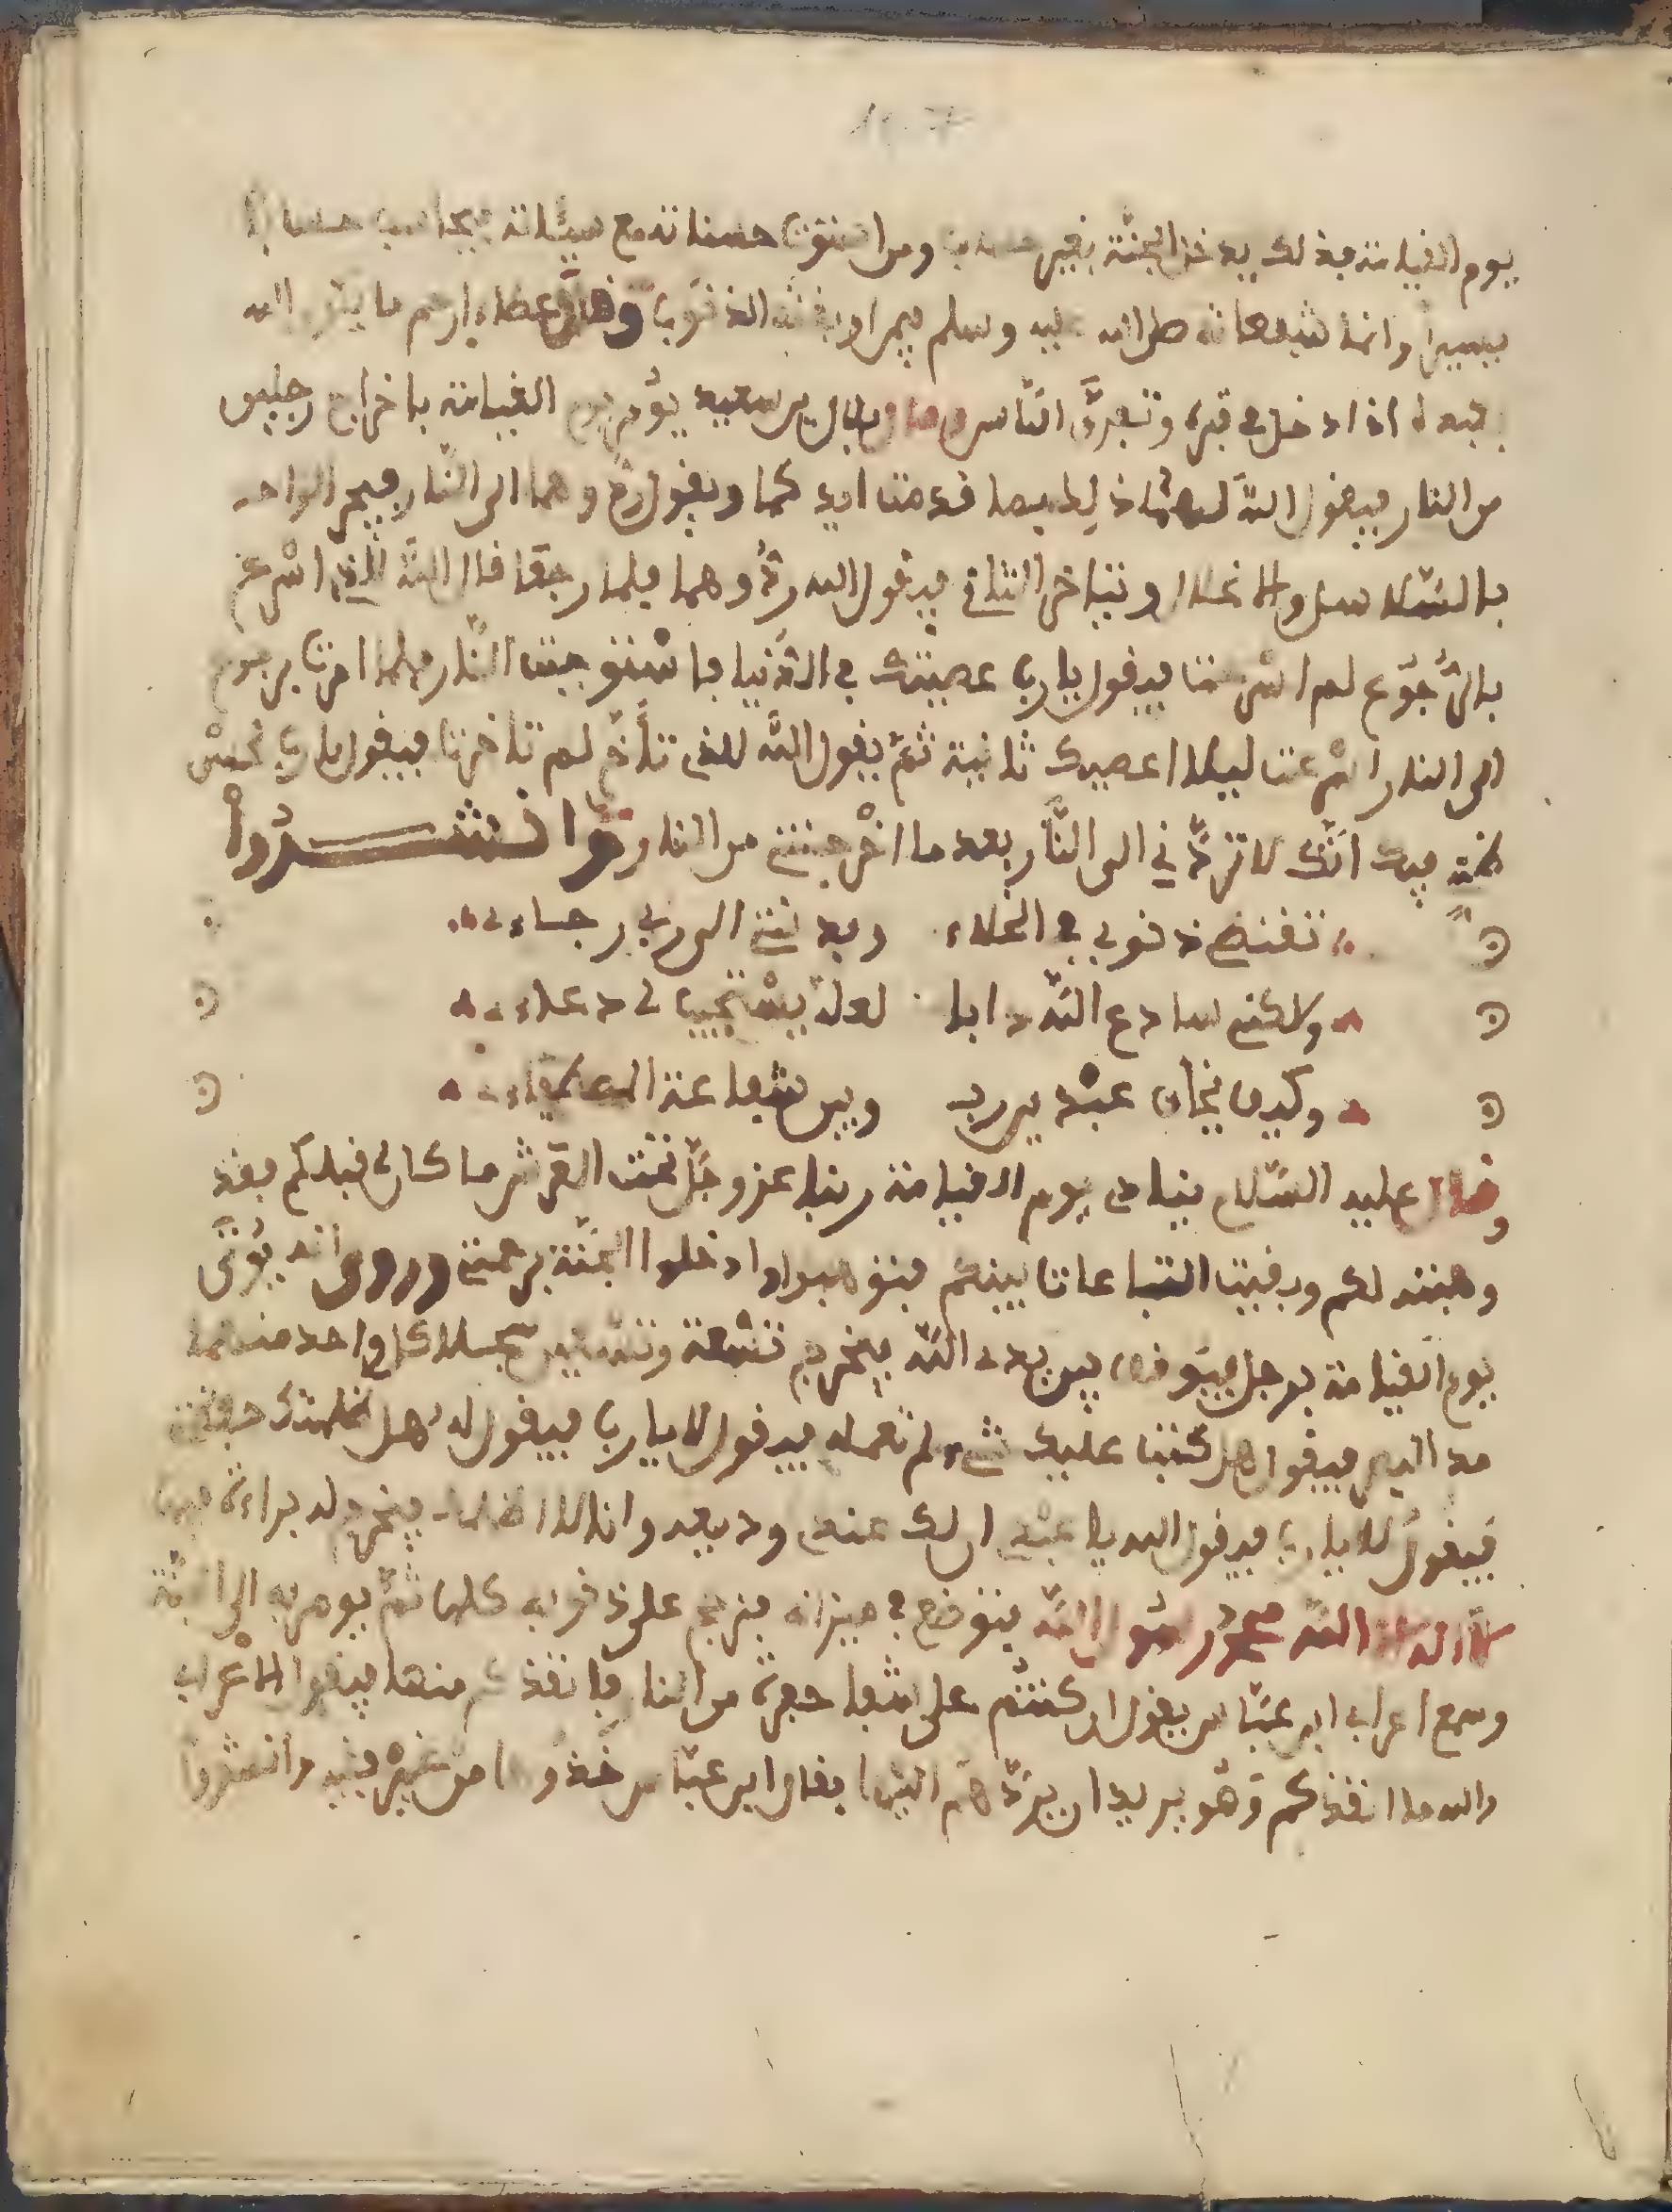 يوم القيامة فذلك يدخل الجنة بغير حساب ومن استوت حسناته مع سيئاته فيحاسب حسابا
يسيرا وانما شفعاته صلى الله عليه وسلم فيمن اوبقته الذنوب وقال عطاء ارحم ما يكون الله
بعبده اذا دخل في قبره وتفرق الناس وقال بلال بن سعيد يؤمر يوم القيامة باخراج رجلين
من النار فيقول الله لهما ذلك بما قدمت ايديكما ويقول ردوهما الى النار فيمر الواحد
بالسلاسل والاغلال ويتاخر الثاني فيقول الله ردوهما فلما رجعا قال الله للذي اسرع
بالرجوع لم اسرعت فيقول يا رب عصيتك في الدنيا فاستوجبت النار فلما امرت برجوع
الى النار اسرعت ليلا اعصيك ثانية ثم يقول الله للذي تأخر لم تاخرت فيقول يا رب لحسن
ظنه فيك انك لا تردني الى النار بعد ما اخرجتني من النار وانشدوا
تقنطني ذنوبي في الخلاء ويدنيني الى ربي رجاءي
ولكني سادع الله دابا لعله يستجيب لي دعاءي
وكيف يخاف عبد بين رب وبين شفاعة المصطفاء
وقال عليه السلام ينادي يوم القيامة ربنا عز وجل تحت العرش ما كان لي قبلكم فقد
وهبته لكم وبقيت التباعات بينكم فتواهبوا وادخلوا الجنة برحمتي وروي انه يؤتى
يوم القيامة برجل فيوقف بين يدي الله فيخرج تسعة وتسعين سجلا كل واحد منهما
مد البصر فيقول هل كتبت عليك شيء لم تعمله فيقول لا يا رب فيقول له هل ظلمتك حفظتي
فيقول لا يا رب فيقول الله يا عبدي ان لك عندي وديعة وانا لا اظلمك فيخرج له براءة فيها
لا اله الا الله محمد رسول الله فتوضع في ميزانه فترجح على ذنوبه كلها ثم يومر به الى الجنة
وسمع اعرابي ابن عباس يقول وكنتم على شفا حفرة من النار فانقذكم منها فيقول الاعرابي
والله ما انقذكم وهو يريد ان يردهم اليها فقال ابن عباس خذوها من غير فقيه وانشدوا